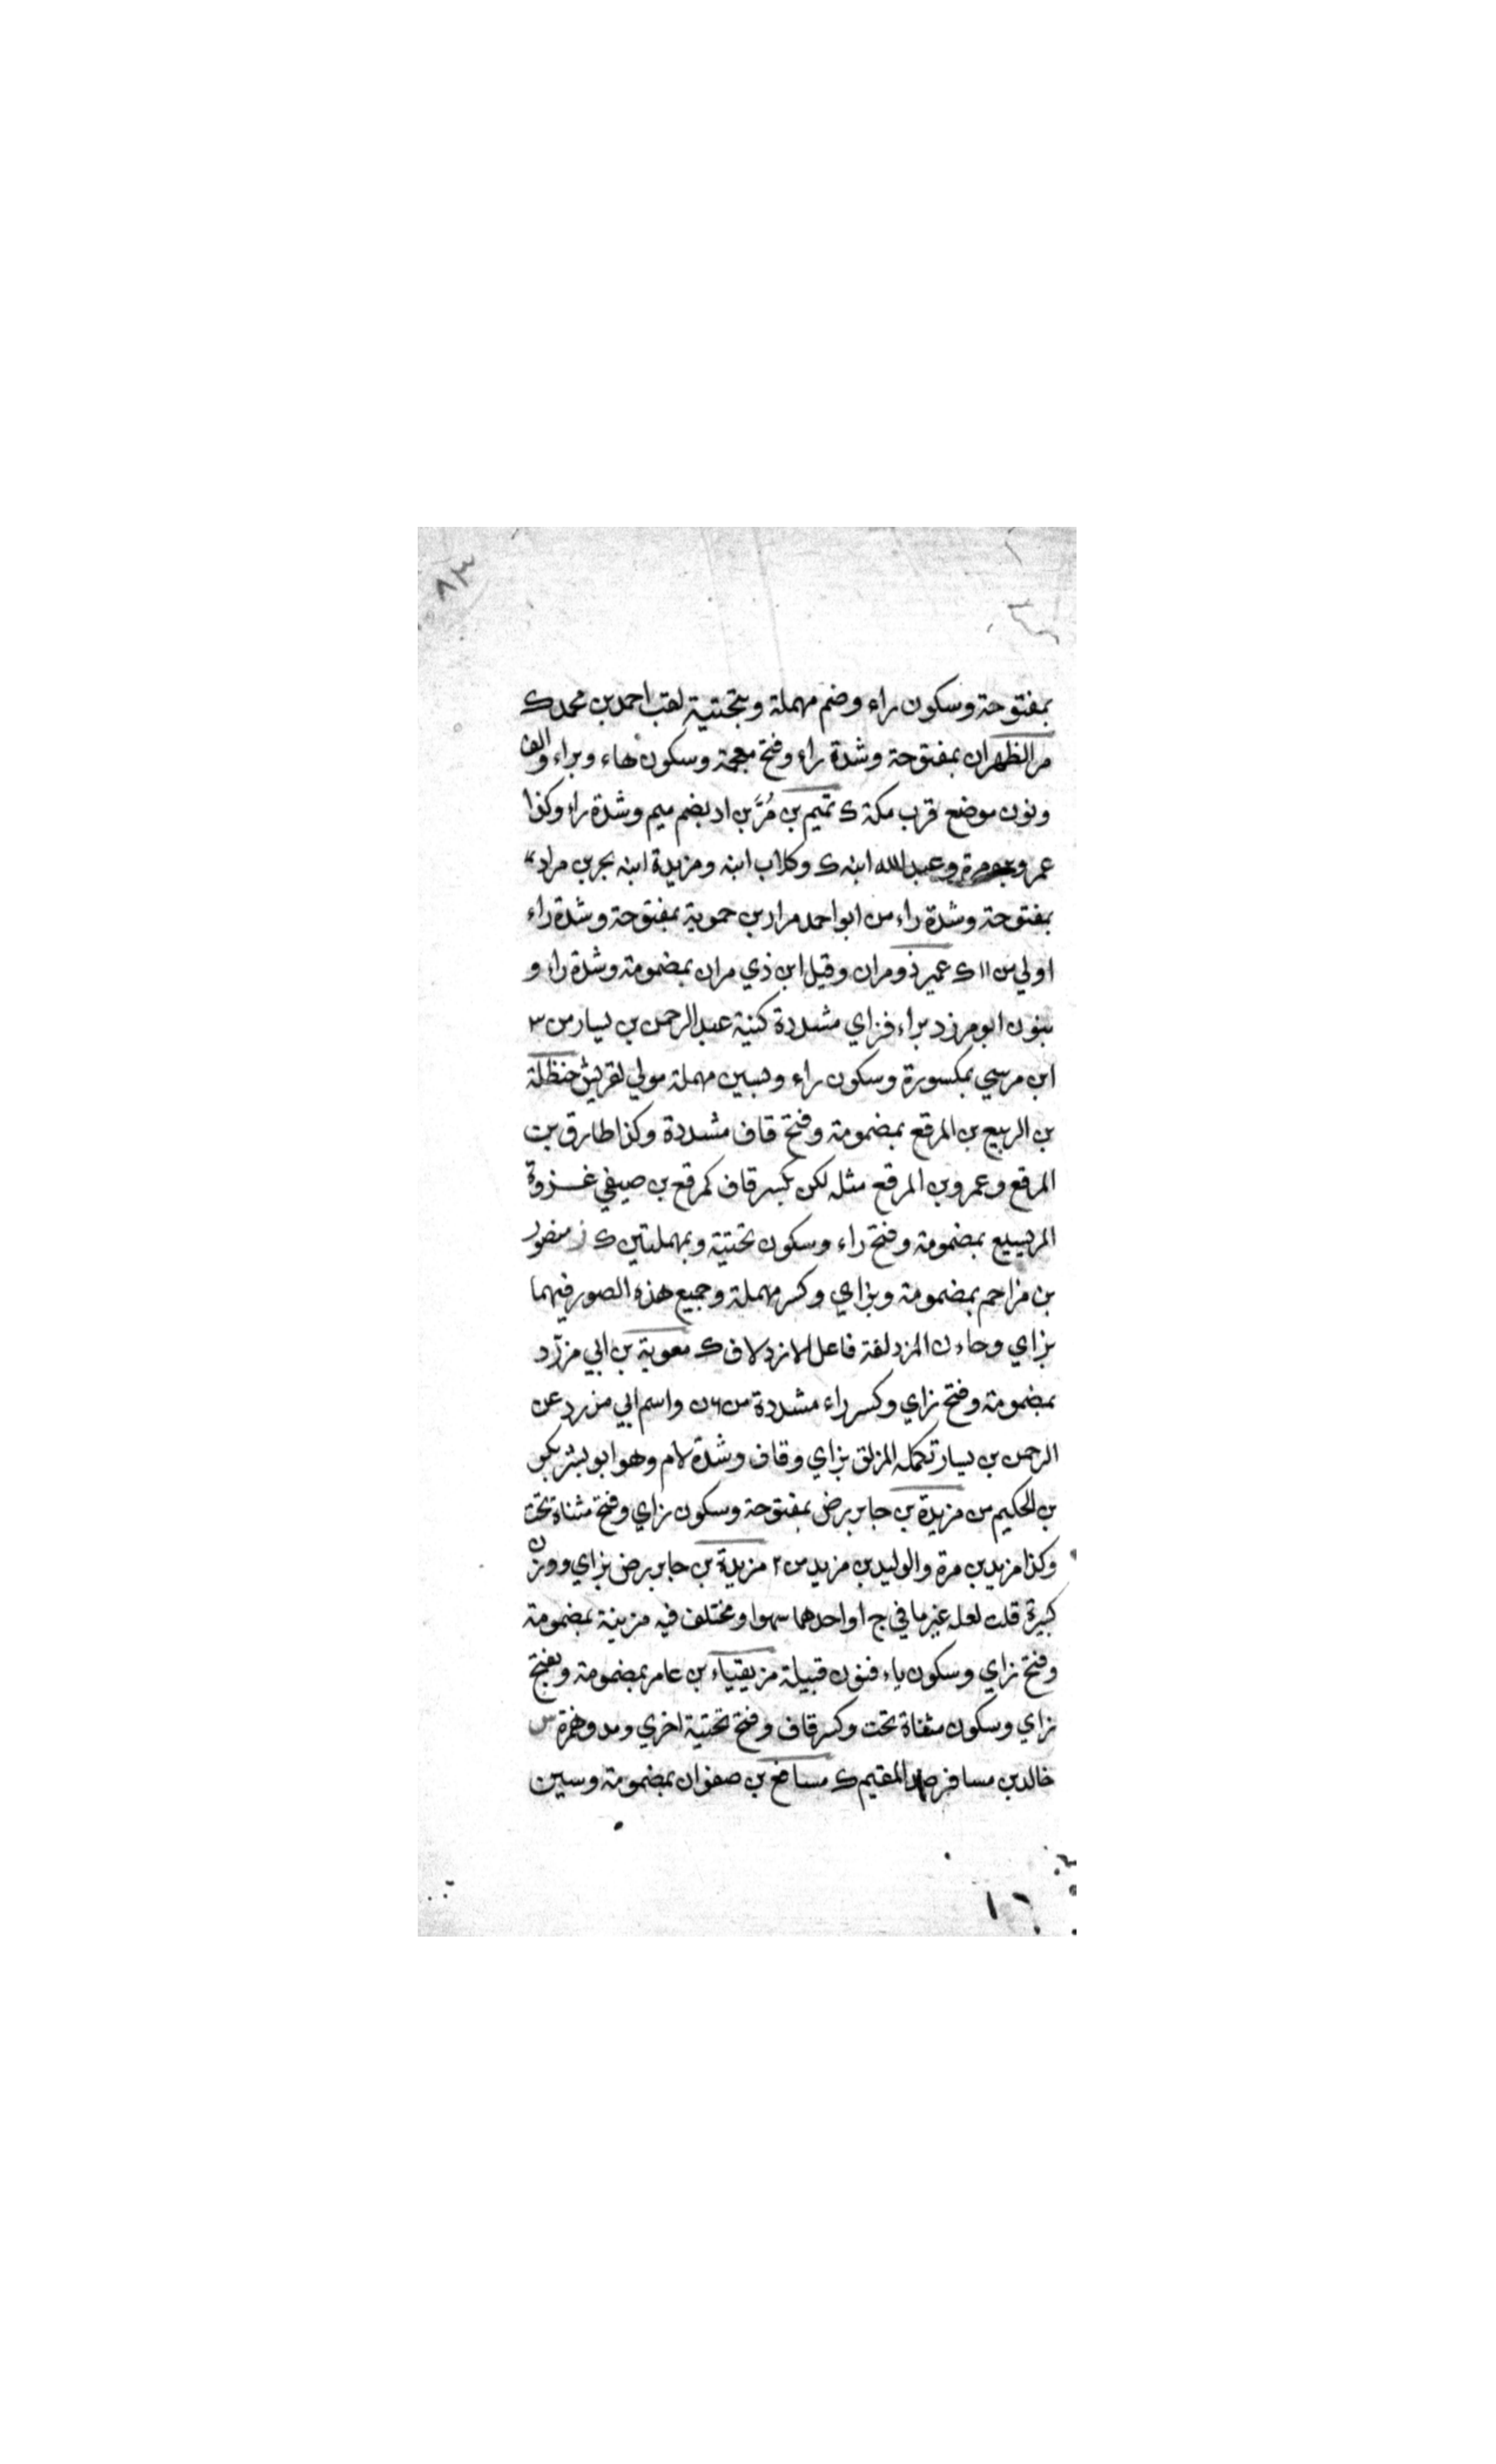 ٨٣
بمفتوحة وسكون راء وضم مهملة وبتحتية لقب احمد بن محمد ك
مر الظهران بمفتوحة وشدة راء وفتح معجمة وسكون هاء وبراء والف
ونون موضع قرب مكة ك تميم بن مُرّ بن اد بضم ميم وشدة راء وكذا
عمرو وعبد الله ابنه ك وكلاب ابنه ومزيدة ابنه بحر بن مراد
بمفتوحة وشدة راء من ابو احمد مرار بن حموية بمفتوحة وشدة راء
اولي س ١١ ك عمير ذو مران وقيل ابن ذي مران بمضمومة وشدة راء و
بنون ابو مرزد براء فزاي مشددة كنية عبد الرحمن بن يسار من ٣
ابن مرسي بمكسورة وسكون راء وبسين مهملة مولي لقريش حنظلة
بن الربيع بن المرقع بمضمومة وفتح قاف مشددة وكذا طارق بن
المرقع وعمرو بن المرقع مثله لكن بكسر قاف كمرقع بن صيفي غزوة
المريسيع بمضمومة وفتح راء وسكون تحتية وبمهملتين ك ز منصور
بن مزاحم بمضمومة وبزاي وكسر مهملة وجميع هذه الصور فيهما
بزاي وحاء ن المزدلفة فاعل الازدلاف ك معوية بن ابي مزرّد
بمضمومة وفتح زاي وكسر راء مشددة من ٦ ن واسم ابي مزرد عن
الرحمن بن يسار تكمله المزلق بزاي وقاف وشدة لام وهو ابو بشر بكر
بن الحكيم من مزيدة بن جابر برض بمفتوحة وسكون زاي وفتح مثناة تحت
وكذا مزيد بن مرة والوليد بن مزيد من ٢ مزيدة بن جابر برض بزاي ووزن
كبيرة قلت لعله غير ما في ج او احدهما سهوا ومختلف فيه مزينة بمضمومة
وفتح زاي وسكون ياء فنون قبيلة مزيقياء بن عامر بمضمومة وبفتح
زاي وسكون مثناة تحت وكسر قاف وفتح تحتية اخري ومد وهمزة س
خالد بن مسافر ضد المقيم ك مسافع بن صفوان بمضمومة وسين